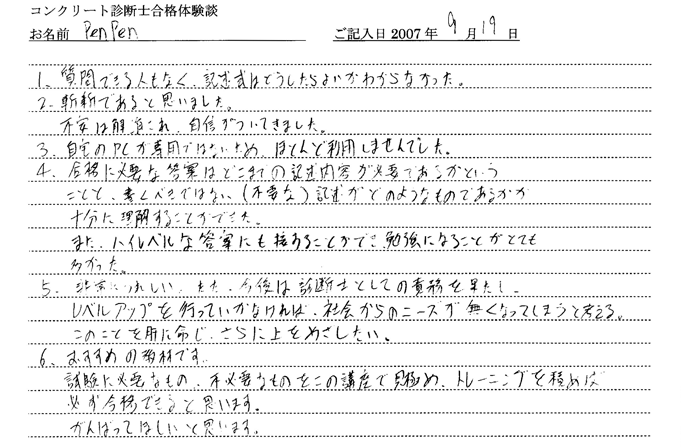 コンクリート診断士合格体験談
お名前 PenPen ご記入日 2007 年 9 月 19 日
1. 質問できる人もなく、記述式はどうしたらよいかわからなかった。
2. 斬新であると思いました。
不安は解消され、自信がついてきました。
3. 自宅のPCが専用ではないため、ほとんど利用しませんでした。
4. 合格に必要な答案はどこまでの記述内容が必要であるかという
ことと、書くべきではない(不要な)記述がどのようなものであるかが
十分に理解することができた。
また、ハイレベルな答案にも接することができ勉強になることがとても
多かった。
5. 非常にうれしい。ただ、今後は診断士としての責務を果たし、
レベルアップを行っていかなければ、社会からのニーズが無くなってしまうと考える。
このことを肝に命じ、さらに上をめざしたい。
6. おすすめの教材です。
試験に必要なもの、不必要なものをこの講座で見極め、トレーニングを積めば
必ず合格できると思います。
がんばってほしいと思います。